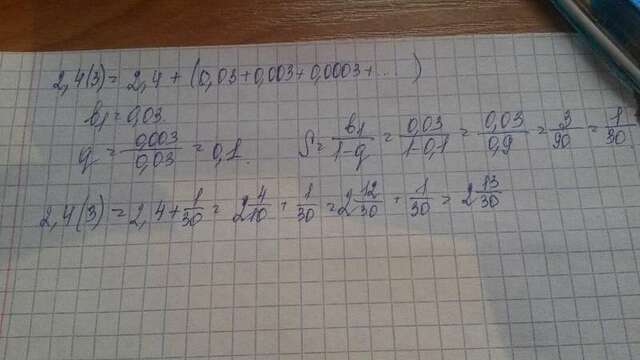 2,4(3) = 2,4 + (0,03+0,003+0,0003+...)
b₁ = 0,03
q = 0,003/0,03 = 0,1. S = b₁/1-q = 0,03/1-0,1 = 0,03/0,9 = 3/90 = 1/30
2,4(3) = 2,4 + 1/30 = 2 4/10 + 1/30 = 2 12/30 + 1/30 = 2 13/30